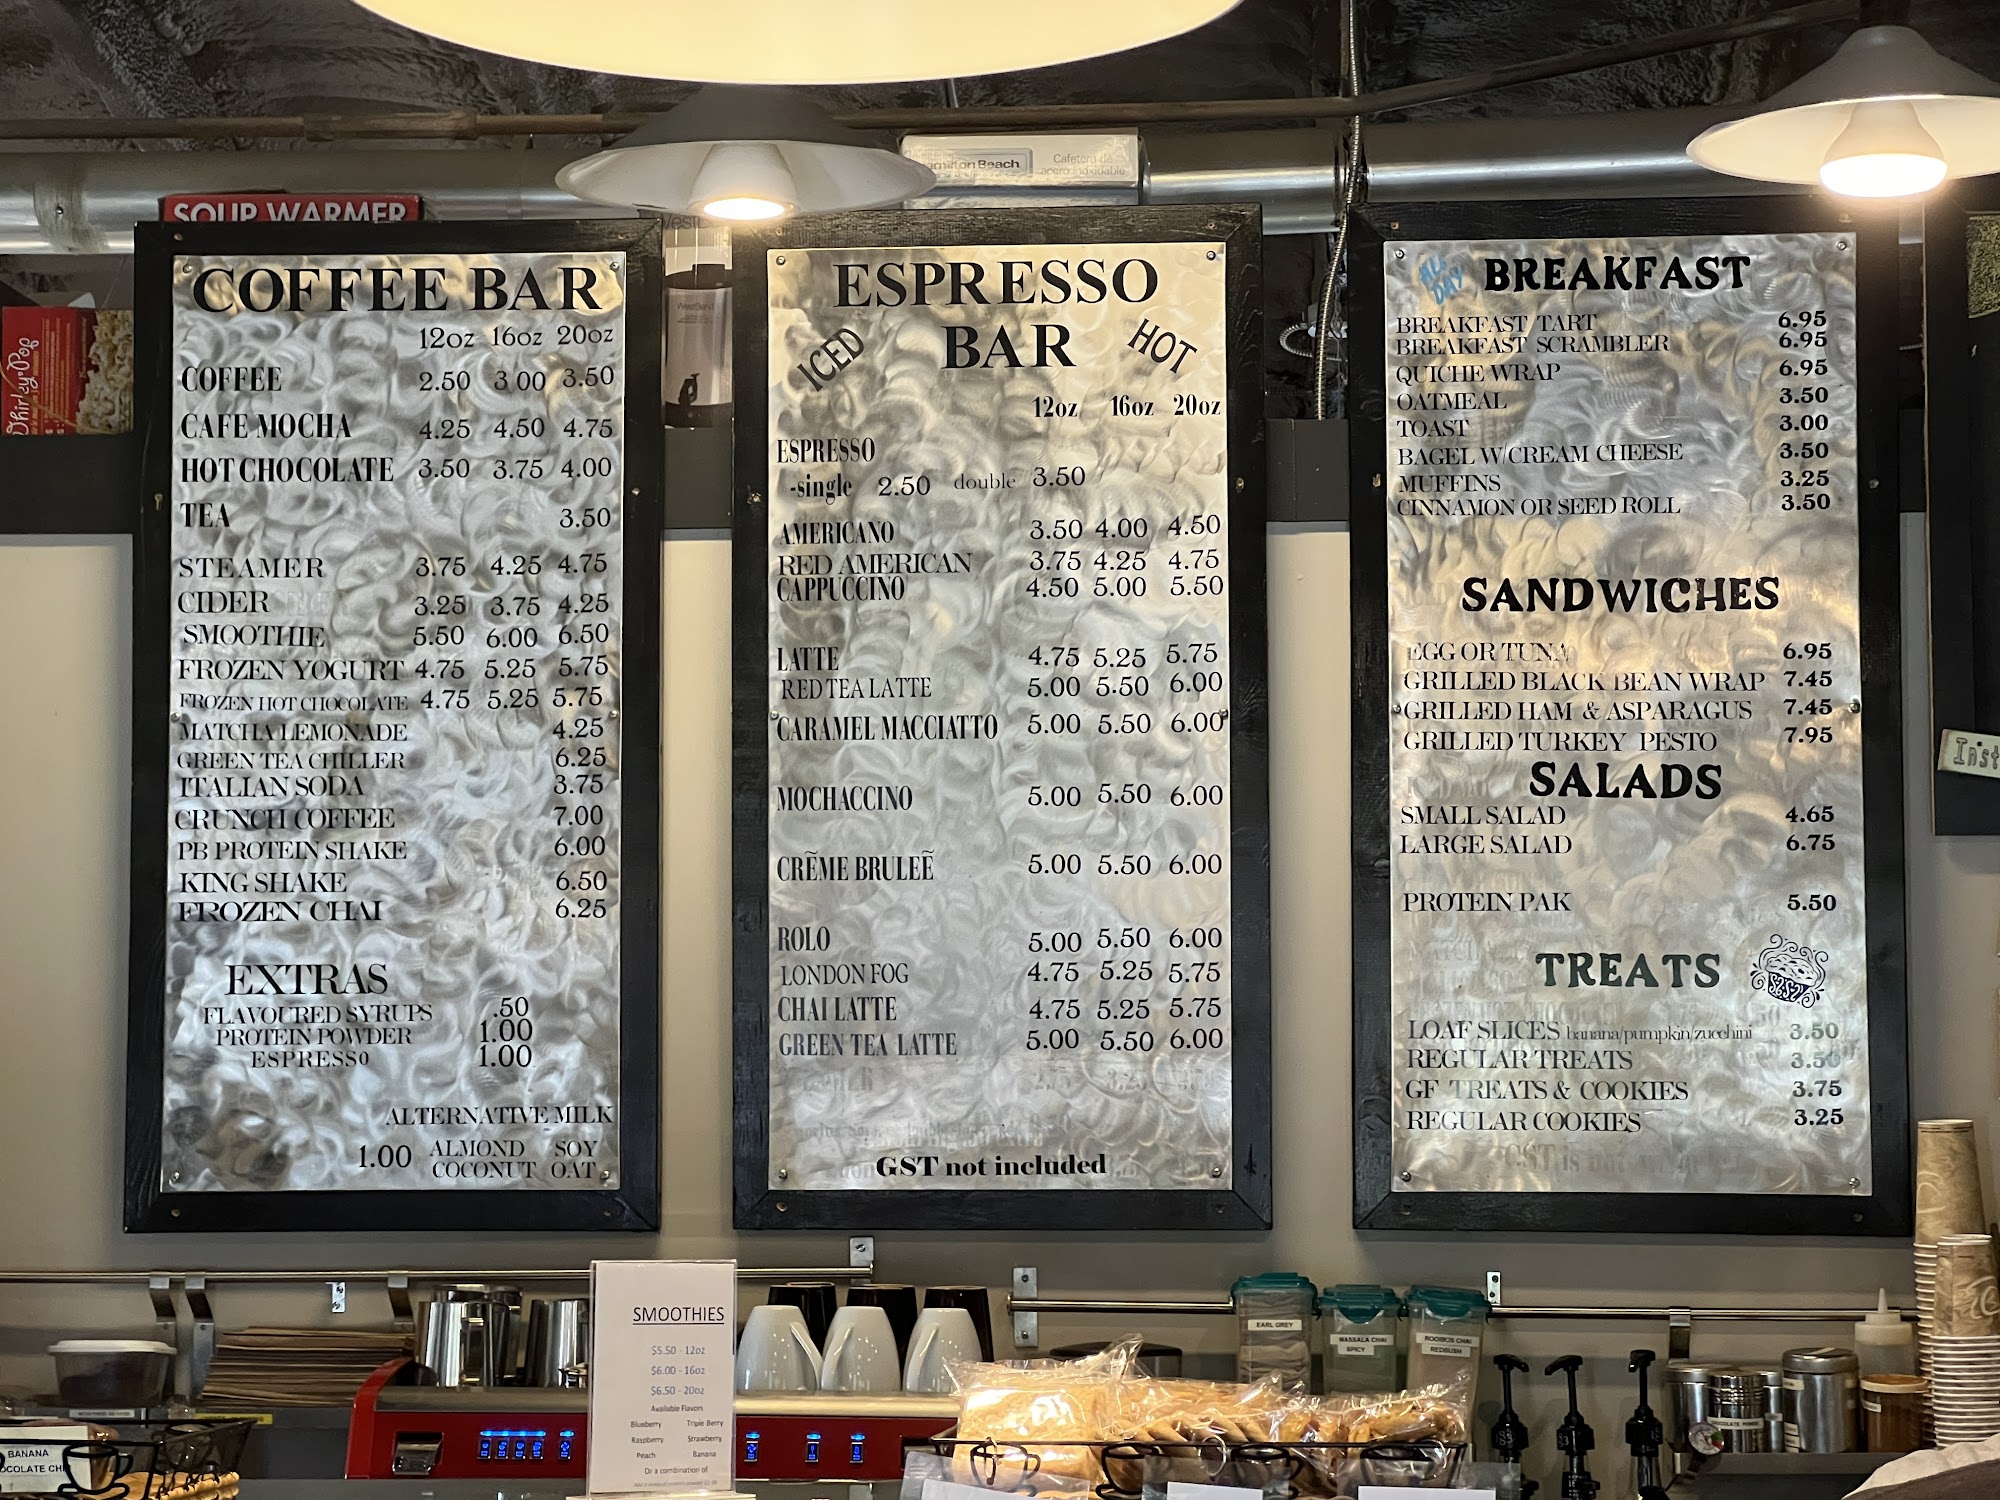 SOUP WARMER
Hamilton Beach
Cafetera de
acero inoxidable
WestBend
Whirley-Pop
COFFEE BAR
12oz 16oz 20oz
COFFEE 2.50 3 00 3.50
CAFE MOCHA 4.25 4.50 4.75
HOT CHOCOLATE 3.50 3.75 4.00
TEA 3.50
STEAMER 3.75 4.25 4.75
CIDER 3.25 3.75 4.25
SMOOTHIE 5.50 6.00 6.50
FROZEN YOGURT 4.75 5.25 5.75
FROZEN HOT CHOCOLATE 4.75 5.25 5.75
MATCHA LEMONADE 4.25
GREEN TEA CHILLER 6.25
ITALIAN SODA 3.75
CRUNCH COFFEE 7.00
PB PROTEIN SHAKE 6.00
KING SHAKE 6.50
FROZEN CHAI 6.25
EXTRAS
FLAVOURED SYRUPS .50
PROTEIN POWDER 1.00
ESPRESSO 1.00
ALTERNATIVE MILK
1.00 ALMOND SOY
COCONUT OAT
ESPRESSO
ICED BAR HOT
12oz 16oz 20oz
ESPRESSO
-single 2.50 double 3.50
AMERICANO 3.50 4.00 4.50
RED AMERICAN 3.75 4.25 4.75
CAPPUCCINO 4.50 5.00 5.50
LATTE 4.75 5.25 5.75
RED TEA LATTE 5.00 5.50 6.00
CARAMEL MACCIATTO 5.00 5.50 6.00
MOCHACCINO 5.00 5.50 6.00
CRẼME BRULEẼ 5.00 5.50 6.00
ROLO 5.00 5.50 6.00
LONDON FOG 4.75 5.25 5.75
CHAI LATTE 4.75 5.25 5.75
GREEN TEA LATTE 5.00 5.50 6.00
GST not included
ALL DAY BREAKFAST
BREAKFAST TART 6.95
BREAKFAST SCRAMBLER 6.95
QUICHE WRAP 6.95
OATMEAL 3.50
TOAST 3.00
BAGEL W/CREAM CHEESE 3.50
MUFFINS 3.25
CINNAMON OR SEED ROLL 3.50
SANDWICHES
EGG OR TUNA 6.95
GRILLED BLACK BEAN WRAP 7.45
GRILLED HAM & ASPARAGUS 7.45
GRILLED TURKEY PESTO 7.95
SALADS
SMALL SALAD 4.65
LARGE SALAD 6.75
PROTEIN PAK 5.50
TREATS
LOAF SLICES banana/pumpkin/zucchini 3.50
REGULAR TREATS 3.50
GF TREATS & COOKIES 3.75
REGULAR COOKIES 3.25
Inst
SMOOTHIES
$5.50 - 12oz
$6.00 - 16oz
$6.50 - 20oz
Available Flavors
Blueberry Triple Berry
Raspberry Strawberry
Peach Banana
Or a combination of
EARL GREY
MASSALA CHAI
SPICY
ROOIBOS CHAI
REDBUSH
BANANA
CHOCOLATE CHI